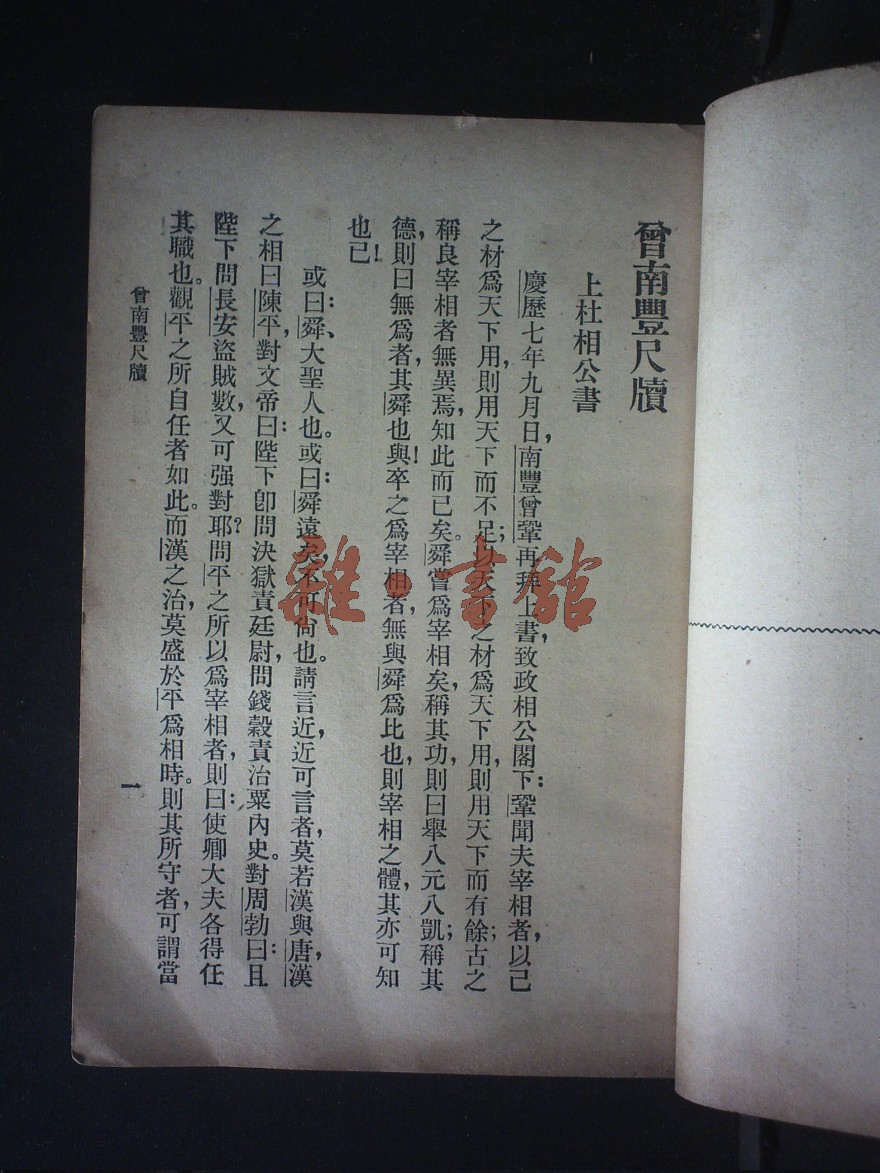 曾南豐尺牘
上杜相公書
慶歷七年九月日，南豐曾鞏再拜上書，致政相公閣下：鞏聞夫宰相者，以己
之材爲天下用，則用天下而不足；以天下之材爲天下用，則用天下而有餘；古之
稱良宰相者無異焉，知此而已矣。舜嘗爲宰相矣，稱其功，則曰舉八元八凱；稱其
德，則曰無爲者，其舜也與！卒之爲宰相者，無與舜爲比也，則宰相之體，其亦可知
也已！
或曰：舜、大聖人也。或曰：舜遠矣，不可尙也。請言近，近可言者，莫若漢與唐，漢
之相曰陳平，對文帝曰：陛下卽問決獄責廷尉，問錢穀責治粟內史。對周勃曰：且
陛下問長安盜賊數，又可强對耶？問平之所以爲宰相者，則曰：使卿大夫各得任
其職也。觀平之所自任者如此。而漢之治，莫盛於平爲相時。則其所守者，可謂當
曾南豐尺牘
一
雜·書館